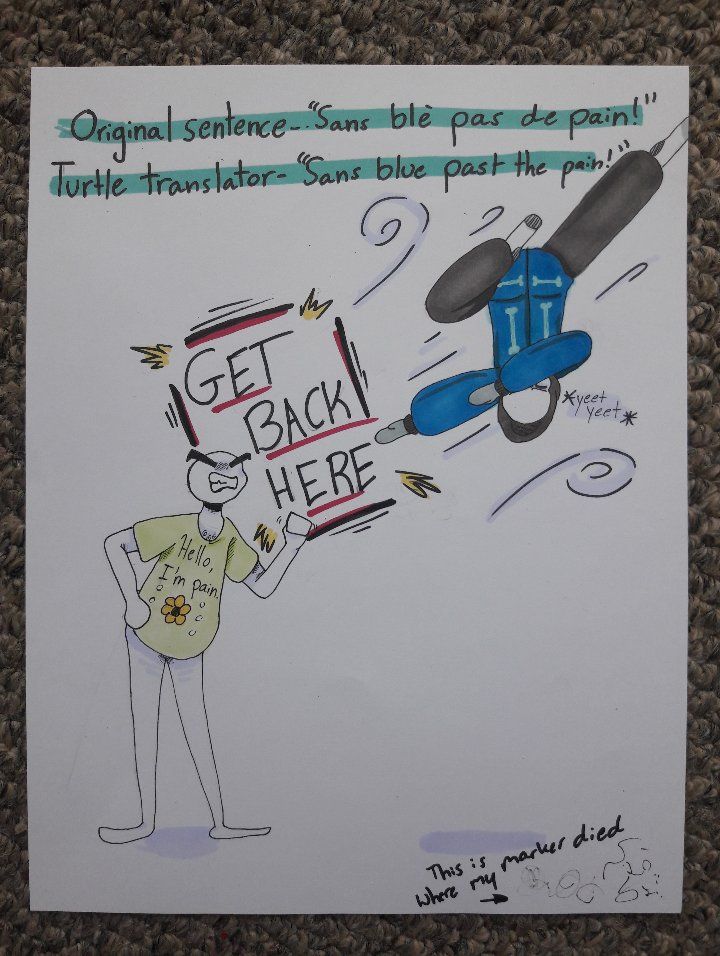 Original sentence-"Sans blè pas de pain!"
Turtle translator-"Sans blue past the pain!"
GET
BACK
HERE
*yeet
yeet*
Hello,
I'm pain.
This is
where my marker died